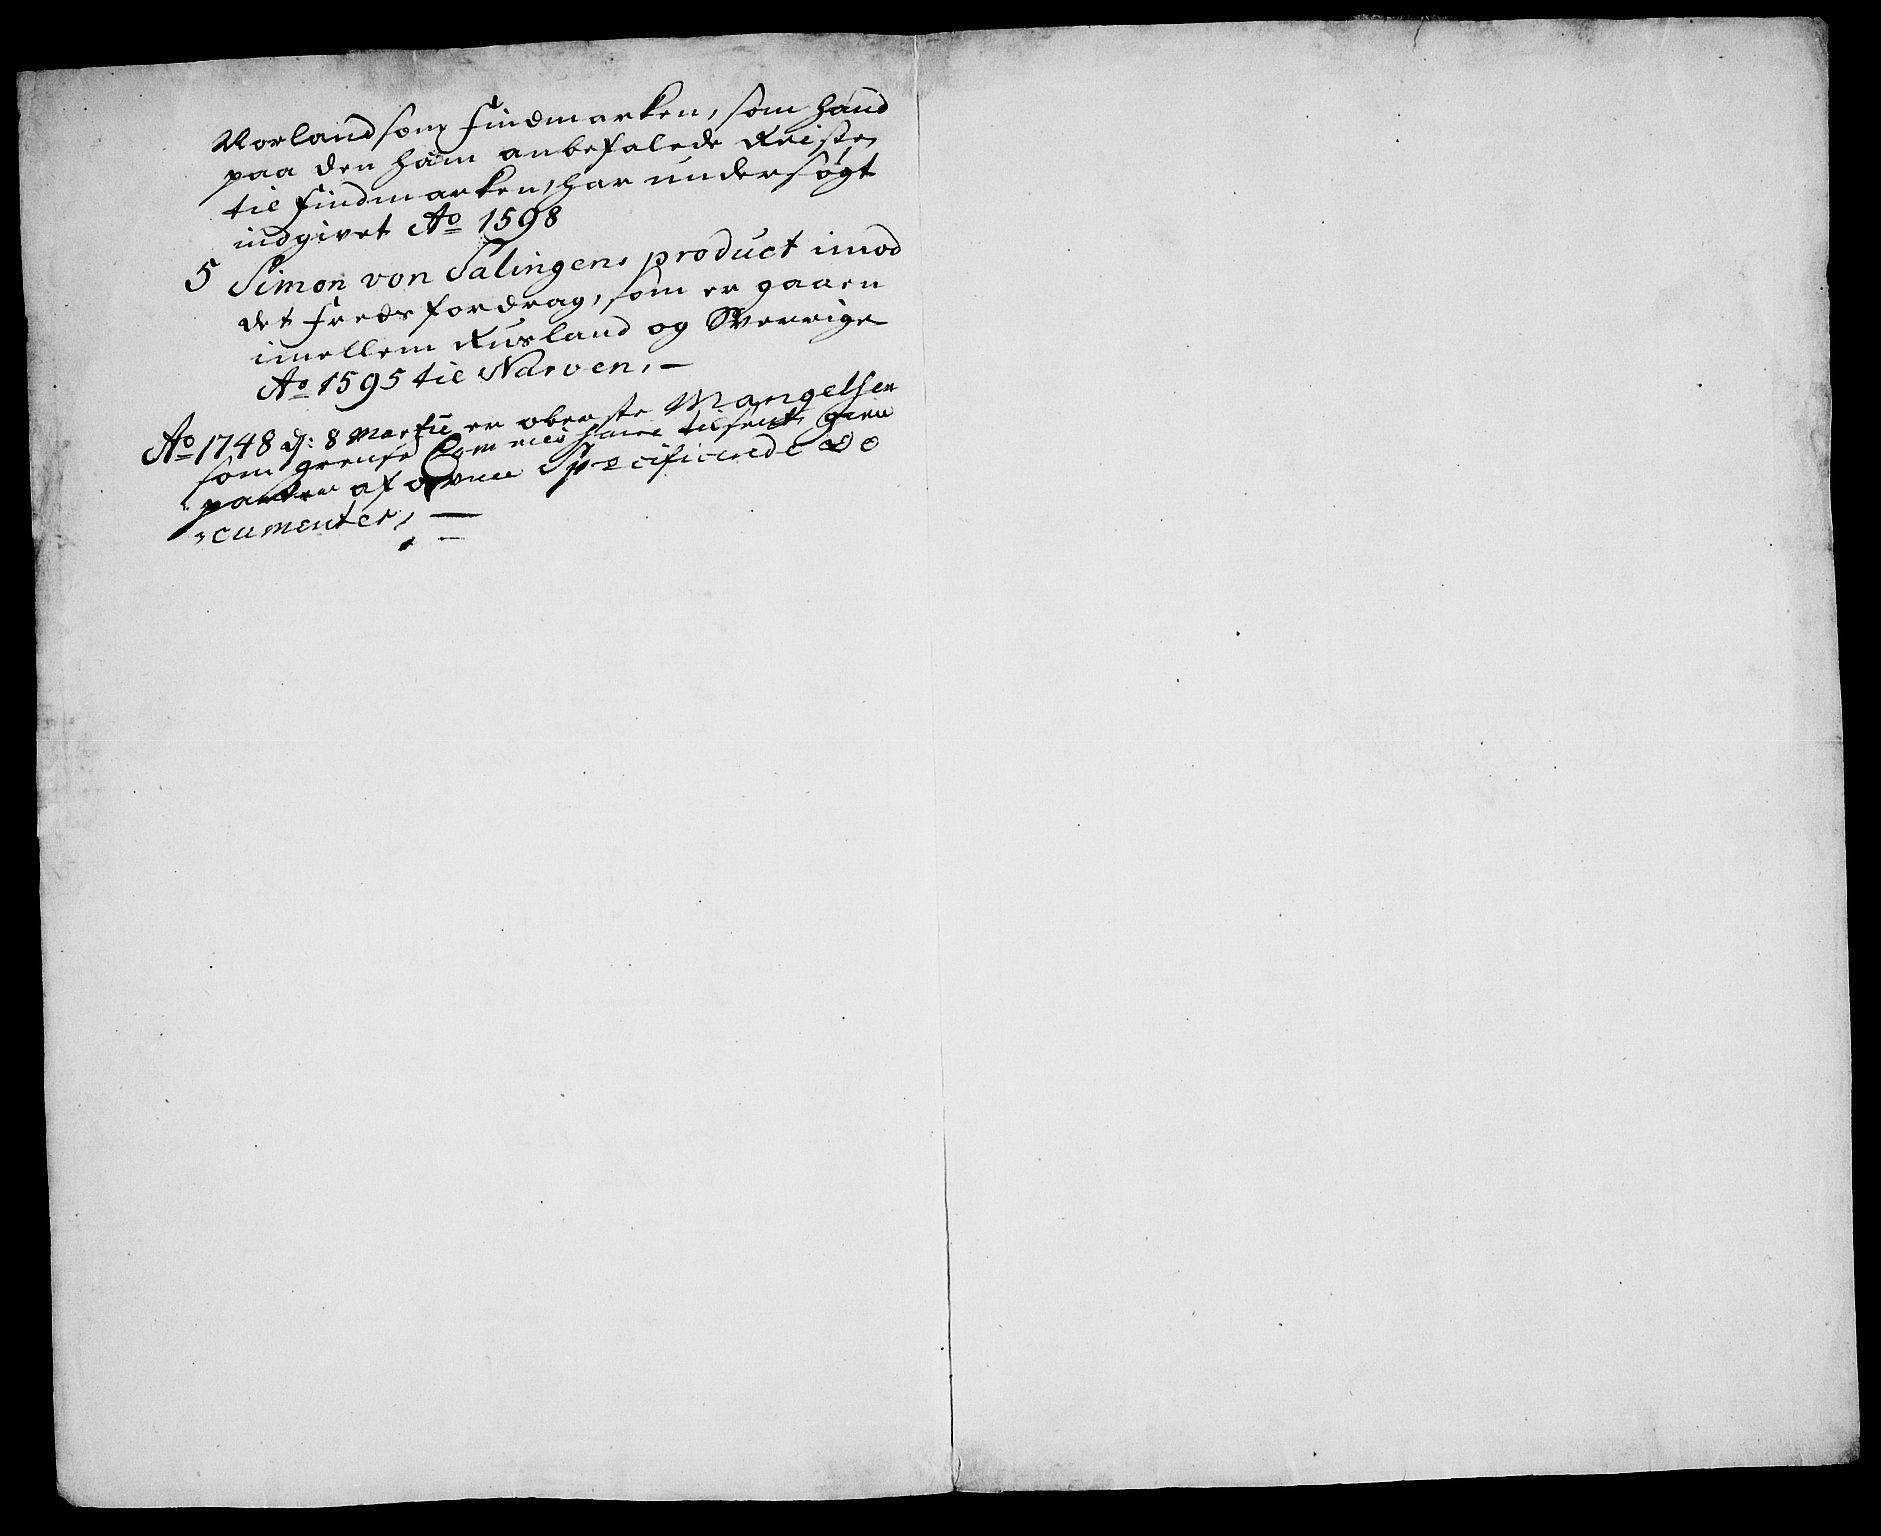 Norland som Findmarken, som hand
paa den ham anbefalede Reise
til Findmarken, har undersøgt
indgivet Ao 1598
5 Simon von Salingens product imod
det Fredsfordrag, som er gaaen
imellem Rusland og Sverrige
Ao 1595 til Narven, -
Ao 1748 d: 8 Martii er oberste Mangelsen
som grense Commiss: tilsent gien
parter af oven Specificerede Do
cumenter, -